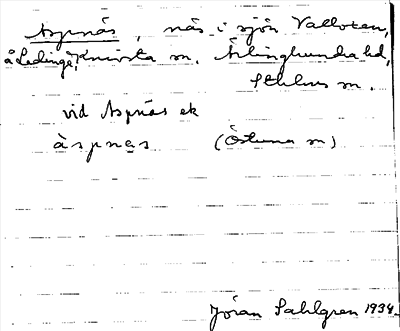 Aspnäs, näs i sjön Valloxen,
å Ledinge, Knivsta sn. Ärlinghundra hd,
Sthlms sn.
vid Aspnäs ek
àspnęs (Östuna sn)
Jöran Sahlgren 1934